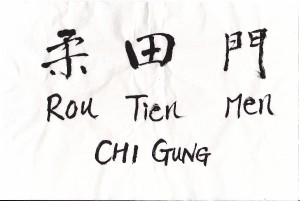 柔田門
Rou Tien Men
CHI GUNG